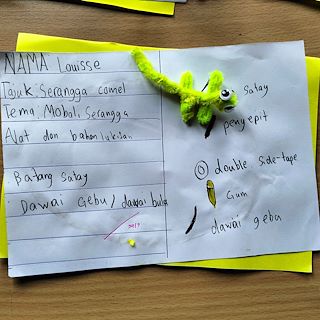 NAMA Louisse
Tajuk Serangga comel
Tema: Mobail Serangga
Alat dan bahan lukisan
Batang Satay
Dawai Gebu / dawai bulu
Satay
penyepit
double side-tape
Gum
dawai gebu